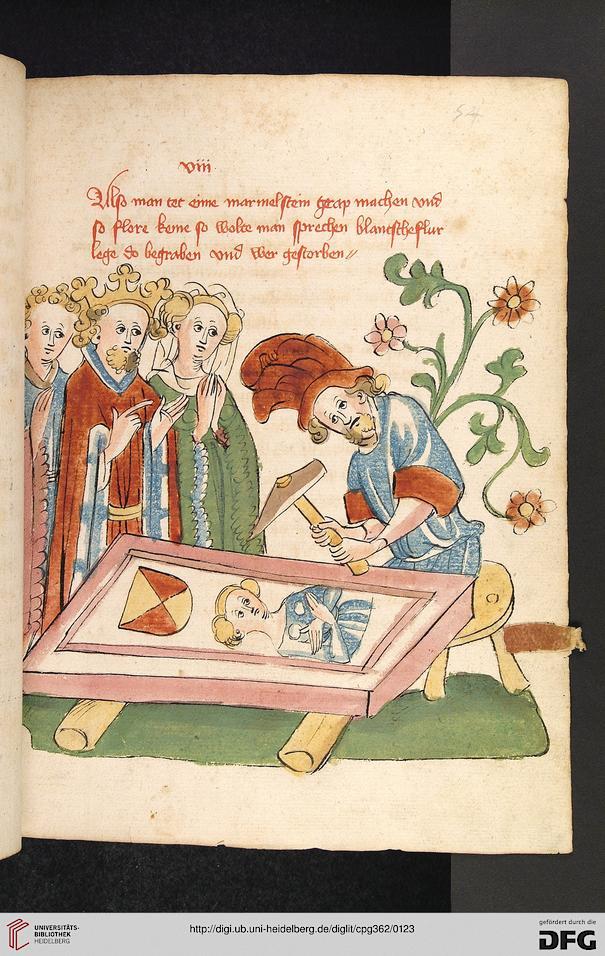 54
viii
Also man tet eine marmelstein grap machen vnd
so flore keme so wolte man sprechen blantscheflur
lege do begraben vnd wer gestorben //
UNIVERSITÄTS-
BIBLIOTHEK
HEIDELBERG
http://digi.ub.uni-heidelberg.de/diglit/cpg362/0123
gefördert durch die
DFG